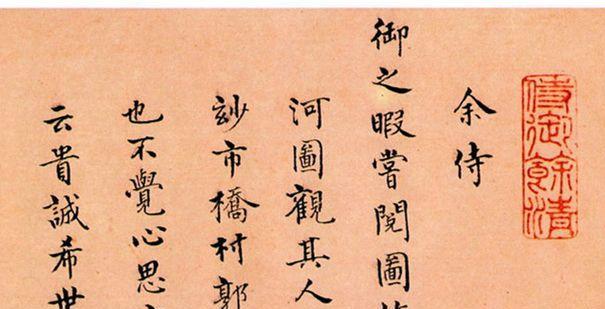 侍御餘清
余侍
御之暇嘗閱圖
河圖觀其人
玅市橋村郭
也不覺心思
云貴誠希世